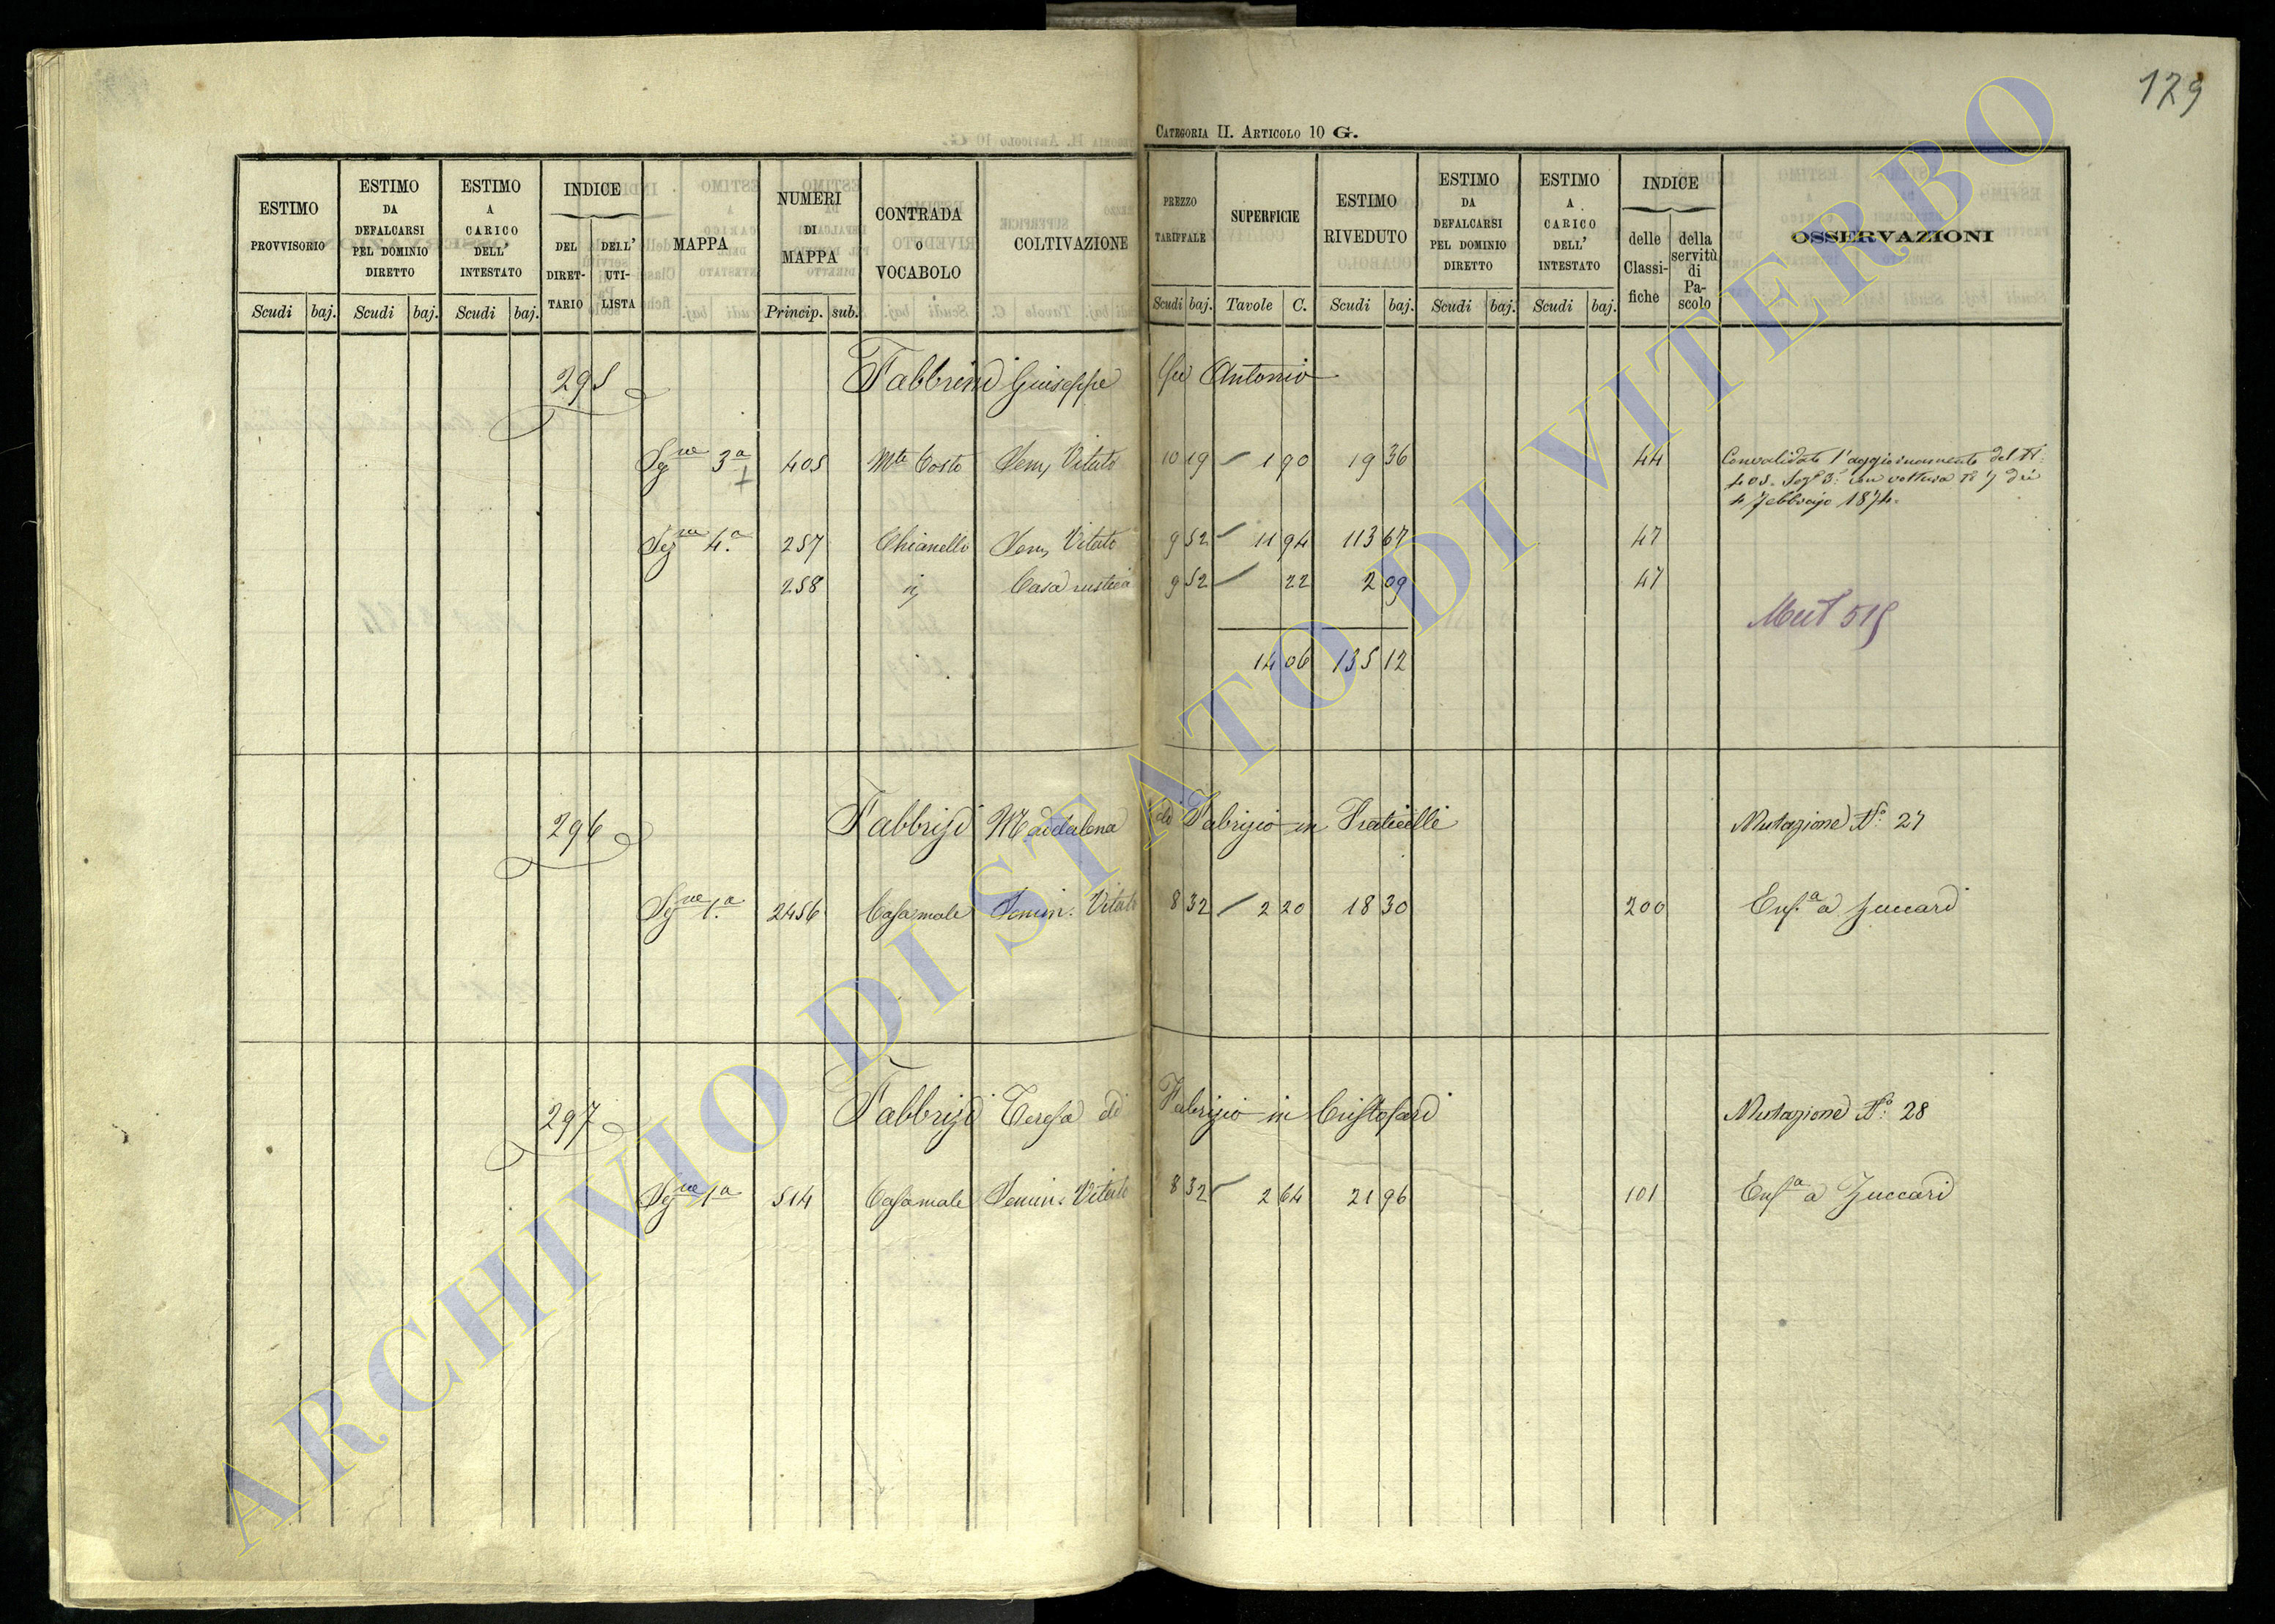 129
CATEGORIA II. ARTICOLO 10 G.
ESTIMO PROVVISORIO Scudi baj.
ESTIMO DA DEFALCARSI PEL DOMINIO DIRETTO Scudi baj.
ESTIMO A CARICO DELL' INTESTATO Scudi baj.
INDICE DEL DIRETTARIO DELL' UTILISTA
MAPPA
NUMERI DI MAPPA Princip. sub.
CONTRADA O VOCABOLO
COLTIVAZIONE
PREZZO TARIFFALE Scudi baj.
SUPERFICIE Tavole C.
ESTIMO RIVEDUTO Scudi baj.
ESTIMO DA DEFALCARSI PEL DOMINIO DIRETTO Scudi baj.
ESTIMO A CARICO DELL' INTESTATO Scudi baj.
INDICE delle Classifiche della servitù di Pascolo
OSSERVAZIONI
295 Fabbrini Giuseppe fu Antonio
Sezne 3a 405 Mte Costo Sem, Vitato 10 19 1 90 19 36 44
Convalidato l'aggiornamento del N.
405. Sezne 3a con voltura N 7 dei
4 Febbrajo 1874.
Sezne 4.a 257 Chianello Sem, Vitato 9 52 11 94 113 67 47
258 Casa rustica 9 52 22 2 09 47
Mut 515
14 06 135 12
296 Fabbrizi Maddalena di Fabrizio in Fraticelli Mutazione No. 27
Sezne 1.a 2456 Casamale Semin. Vitato 8 32 2 20 18 30 200 Enf.a a Zuccari
297 Fabbrizi Teresa di Fabrizio in Cristofari Mutazione No. 28
Sezne 1a 514 Casamale Semin. Vitato 8 32 2 64 21 96 101 Enf.a a Zuccari
ARCHIVIO DI STATO DI VITERBO